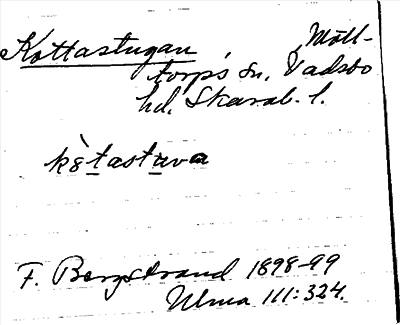 Kottastugan, Mölltorps sn, Vadsbo
hd, Skarab. l.
kòtastuva
F. Bergstrand 1898-99
Ulma 111:324.